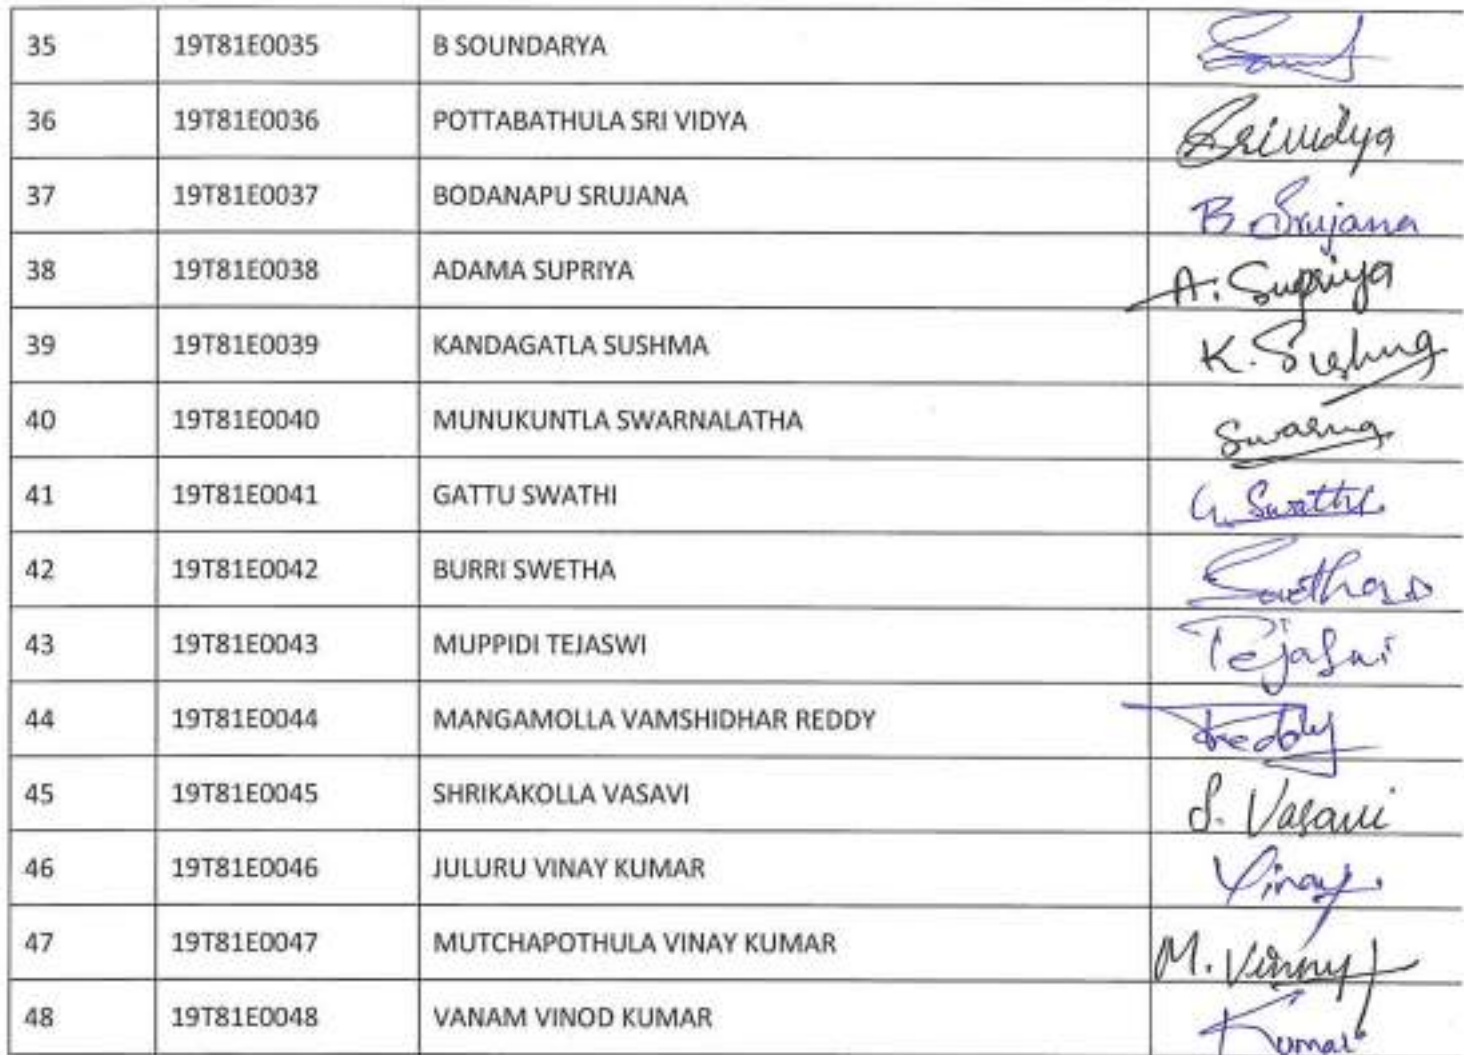 35 19T81E0035 B SOUNDARYA
36 19T81E0036 POTTABATHULA SRI VIDYA Srividya
37 19T81E0037 BODANAPU SRUJANA B Srujana
38 19T81E0038 ADAMA SUPRIYA A. Supriya
39 19T81E0039 KANDAGATLA SUSHMA K. Sushma
40 19T81E0040 MUNUKUNTLA SWARNALATHA Swarna
41 19T81E0041 GATTU SWATHI G. Swathi
42 19T81E0042 BURRI SWETHA
43 19T81E0043 MUPPIDI TEJASWI Tejaswi
44 19T81E0044 MANGAMOLLA VAMSHIDHAR REDDY Reddy
45 19T81E0045 SHRIKAKOLLA VASAVI S. Vasavi
46 19T81E0046 JULURU VINAY KUMAR Vinay.
47 19T81E0047 MUTCHAPOTHULA VINAY KUMAR M. Vinny
48 19T81E0048 VANAM VINOD KUMAR Kumar